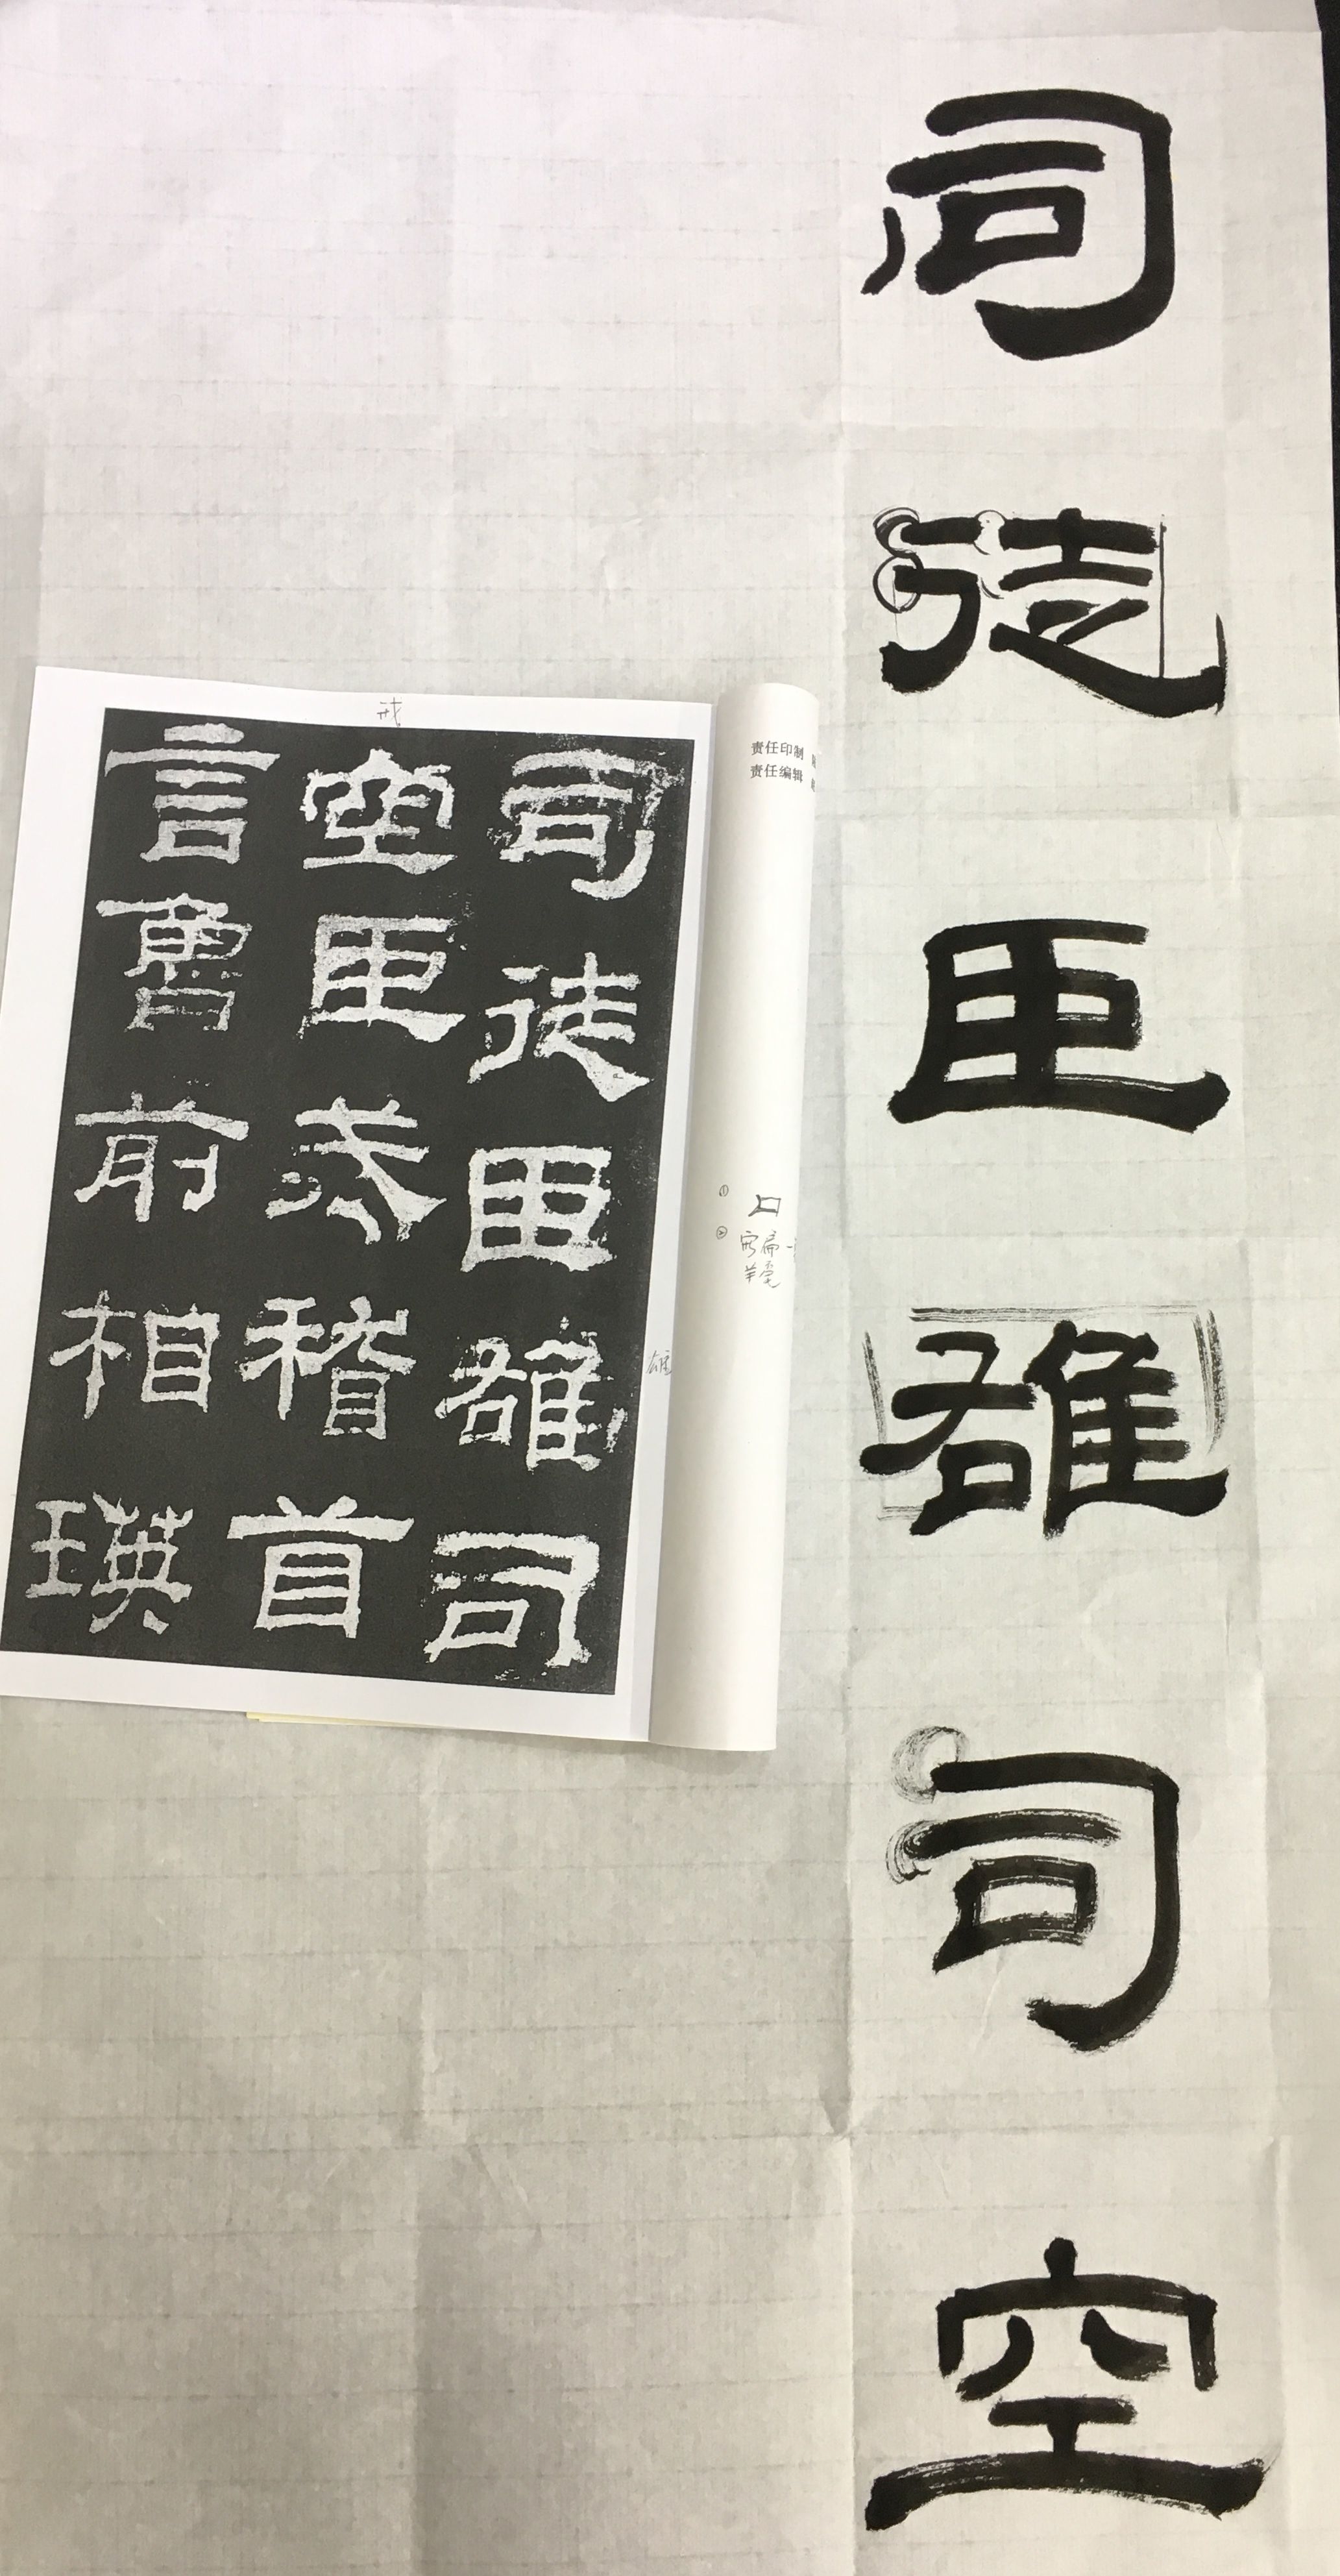 司徒臣雄司空
司徒臣雄司
空臣戒稽首
言魯前相瑛
戒
雄
责任印制
责任编辑
①
②
扁
羊毫